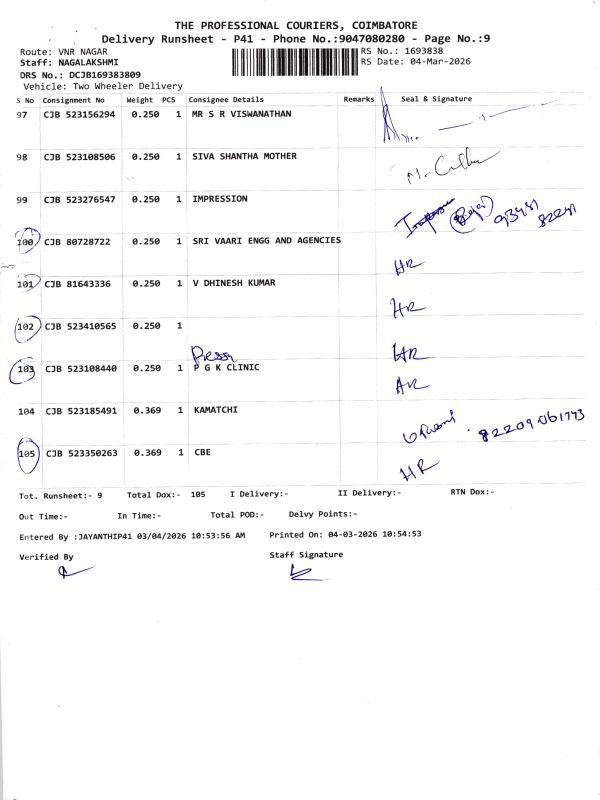 THE PROFESSIONAL COURIERS, COIMBATORE
Delivery Runsheet - P41 - Phone No.:9047080280 - Page No.:9
Route: VNR NAGAR RS No.: 1693838
Staff: NAGALAKSHMI RS Date: 04-Mar-2026
DRS No.: DCJB169383809
Vehicle: Two Wheeler Delivery
S No Consignment No Weight PCS Consignee Details Remarks Seal & Signature
97 CJB 523156294 0.250 1 MR S R VISWANATHAN
98 CJB 523108506 0.250 1 SIVA SHANTHA MOTHER
99 CJB 523276547 0.250 1 IMPRESSION
100 CJB 80728722 0.250 1 SRI VAARI ENGG AND AGENCIES
HR
101 CJB 81643336 0.250 1 V DHINESH KUMAR
HR
102 CJB 523410565 0.250 1
HR
103 CJB 523108440 0.250 1 P G K CLINIC
HR
104 CJB 523185491 0.369 1 KAMATCHI
105 CJB 523350263 0.369 1 CBE
HR
Tot. Runsheet:- 9 Total Dox:- 105 I Delivery:- II Delivery:- RTN Dox:-
Out Time:- In Time:- Total POD:- Delvy Points:-
Entered By :JAYANTHIP41 03/04/2026 10:53:56 AM Printed On: 04-03-2026 10:54:53
Verified By Staff Signature